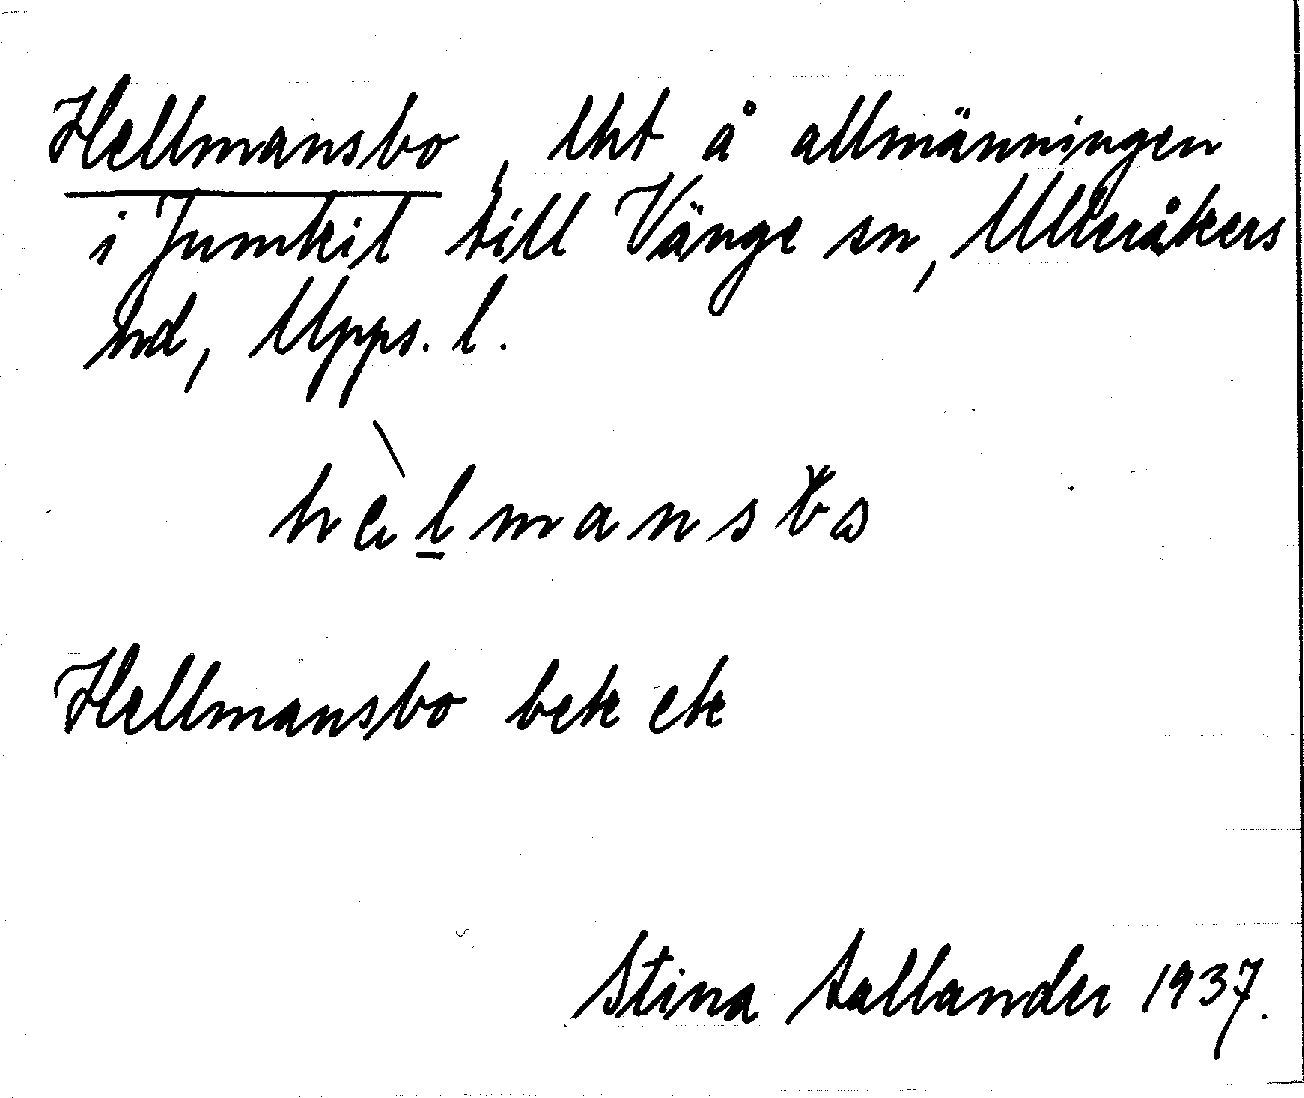 Hellmansbo, lht å allmänningen
i Jumkil till Vänge sn, Ulleråkers
hd, Upps. l.
hælmansbo
Hellmansbo bek ek
Stina Sallander 1937.